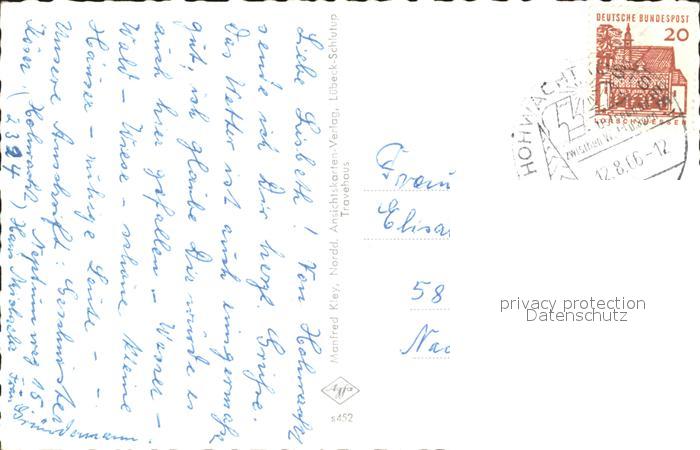 Liebe Lisbeth! Von Hohwacht
sende ich Dir herzl. Grüße.
Das Wetter ist auch einigermaß.
gut, ich glaube Dir würde es
auch hier gefallen - Wasser -
Wald - Wiese - schöne kleine
Häuser - ruhige Leute -
Unsere Anschrift: Geschwister
(Hohwacht) Neptunweg 15
2324 Haus
Frau
Manfred Kley, Nordd. Ansichtskarten-Verlag, Lübeck-Schlutup
Travehaus
s452
DEUTSCHE BUNDESPOST
20
LORSCH/HESSEN
HOHWACHT
12.8.66-12
Frau
Elisa
58
privacy protection
Datenschutz